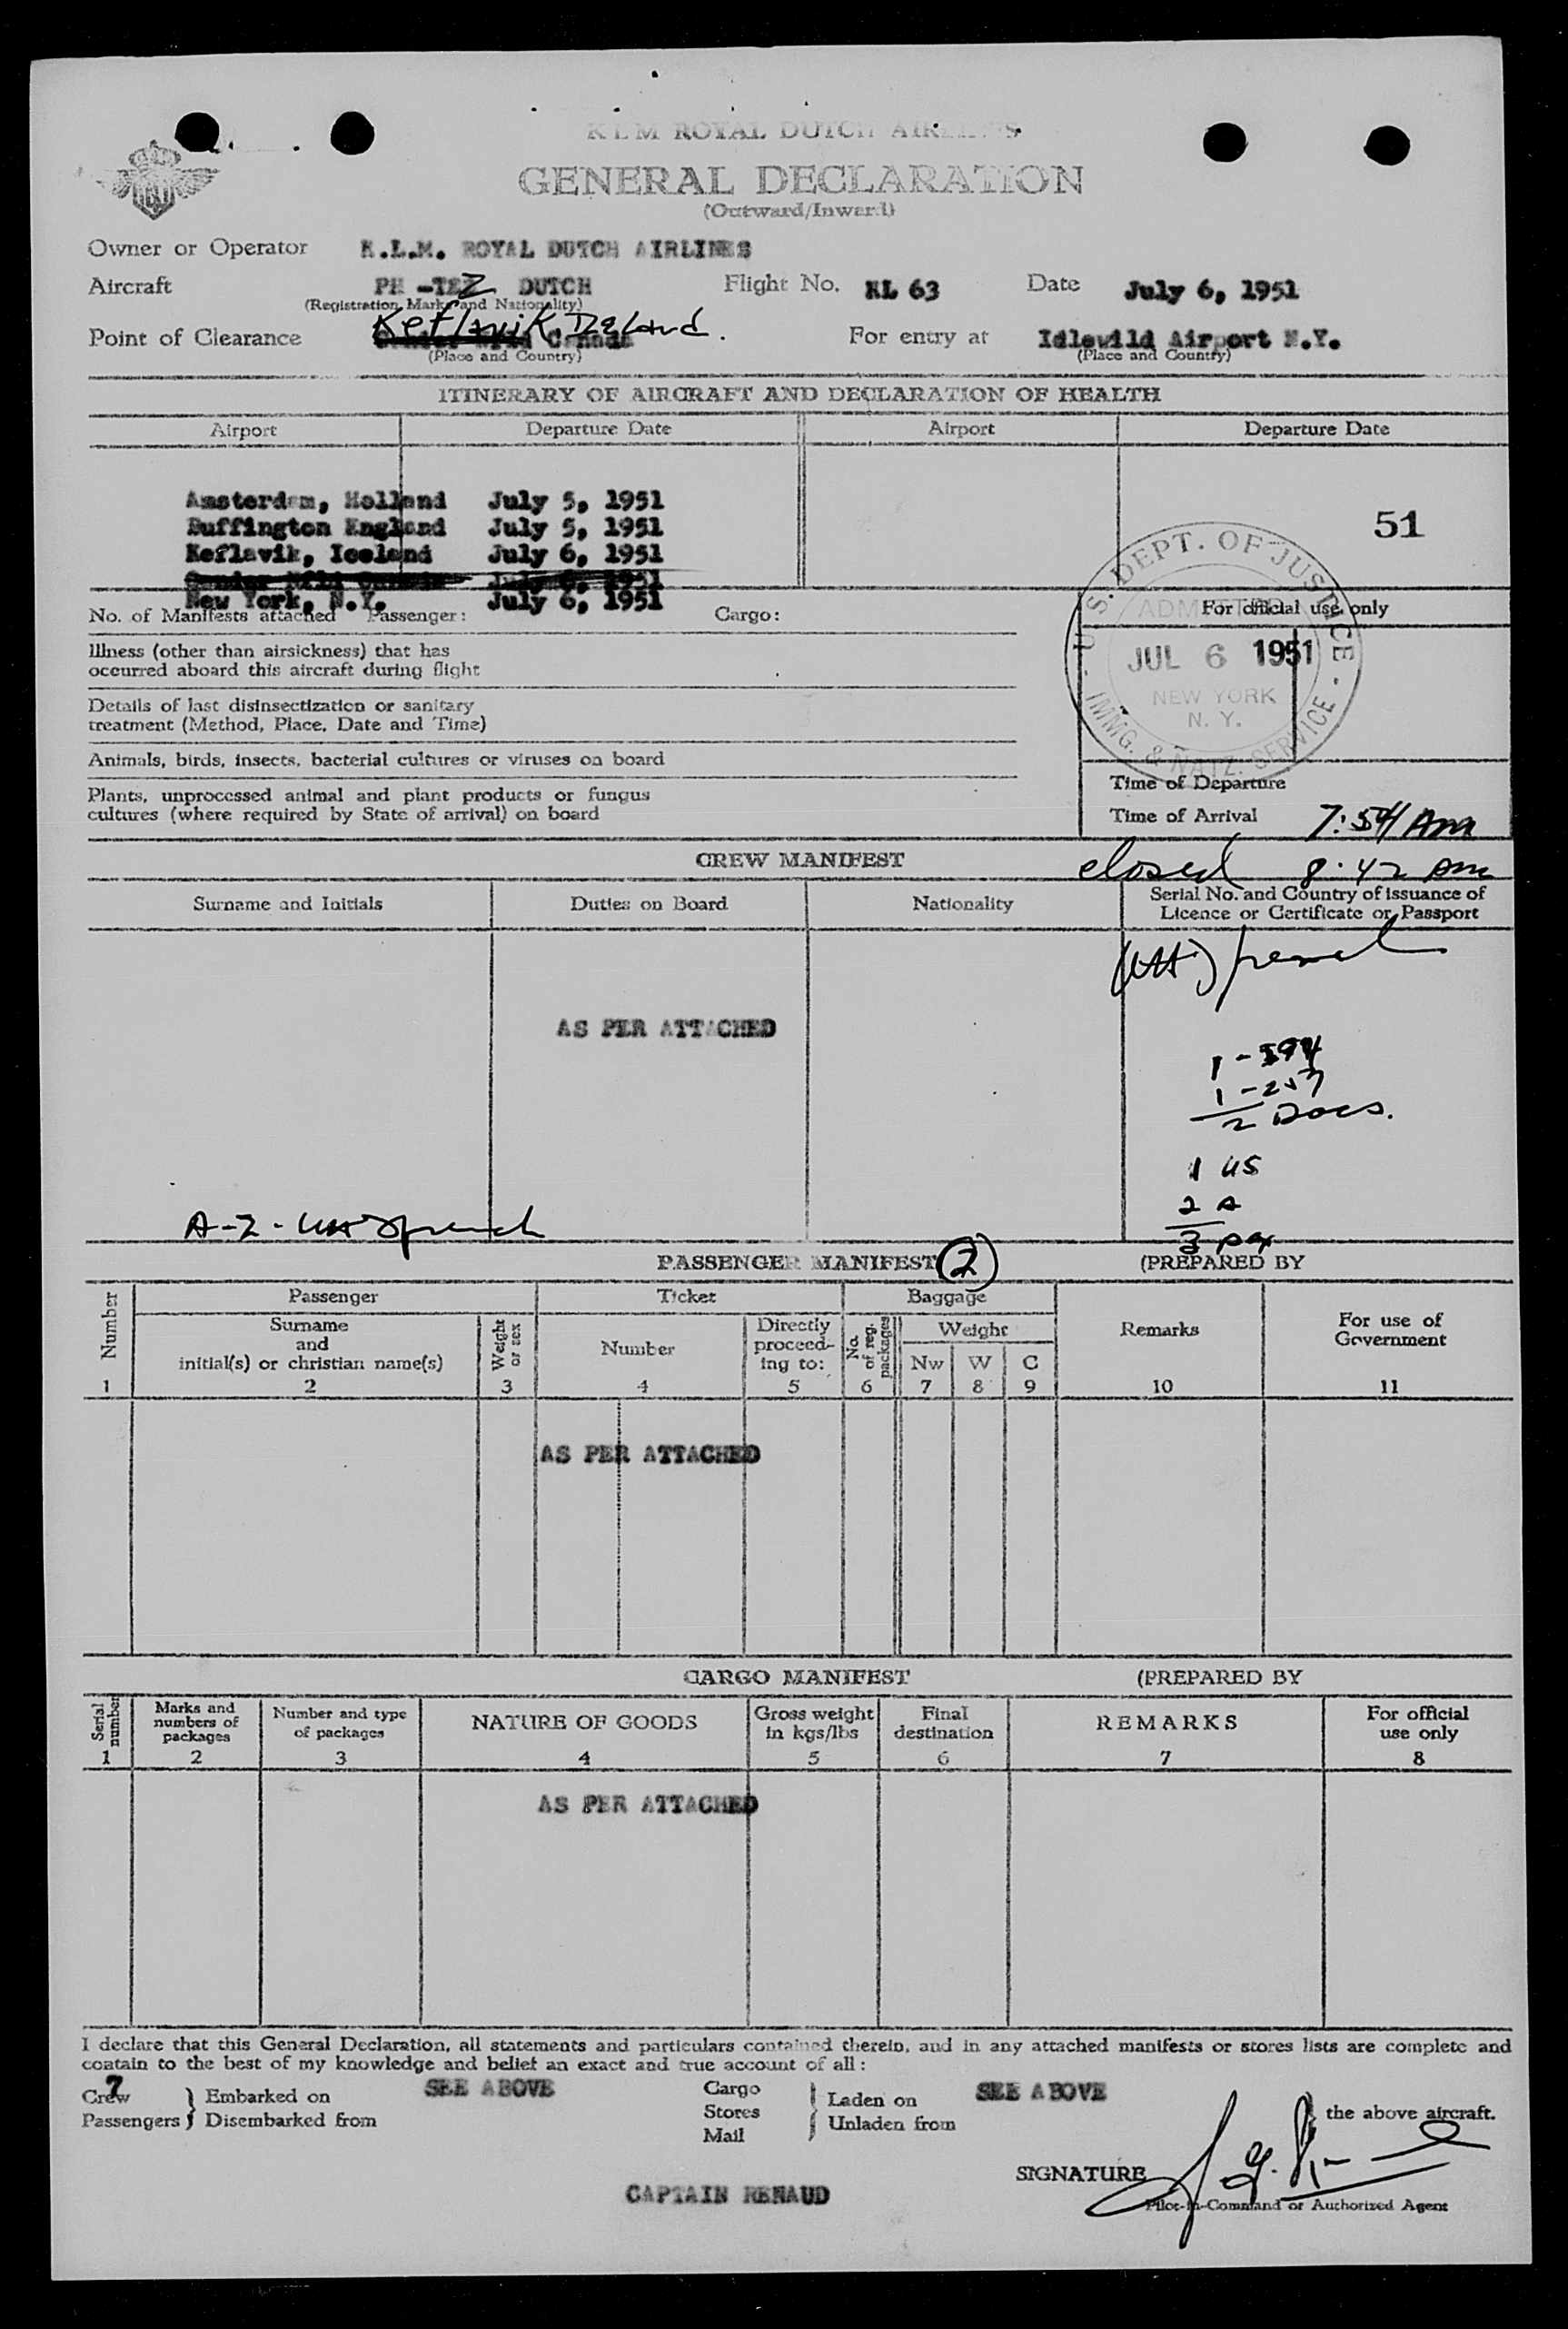 KLM ROYAL DUTCH AIRLINES
GENERAL DECLARATION
(Outward/Inward)
Owner or Operator K.L.M. ROYAL DUTCH AIRLINES
Aircraft PH - DUTCH Flight No. KL 63 Date July 6, 1951
(Registration Marks and Nationality)
Keflavik,
Point of Clearance Canada. For entry at Idlewild Airport N.Y.
(Place and Country) (Place and Country)
ITINERARY OF AIRCRAFT AND DECLARATION OF HEALTH
Airport Departure Date Airport Departure Date
Amsterdam, Holland July 5, 1951
51
Buffington England July 5, 1951
Keflavik, Iceland July 6, 1951
July 6, 1951
New York, N.Y. July 6, 1951
No. of Manifests attached Passenger: Cargo:
For official use only
U.S. DEPT. OF JUSTICE - IMMG. & NATZ. SERVICE -
ADMITTED
JUL 6 1951
NEW YORK
N. Y.
Illness (other than airsickness) that has
occurred aboard this aircraft during flight
Details of last disinsectization or sanitary
treatment (Method, Place, Date and Time)
Animals, birds, insects, bacterial cultures or viruses on board
Plants, unprocessed animal and plant products or fungus
cultures (where required by State of arrival) on board
Time of Departure
Time of Arrival 7:54 AM
closed 8:42 AM
CREW MANIFEST
Surname and Initials Duties on Board Nationality Serial No. and Country of issuance of
Licence or Certificate or Passport
AS PER ATTACHED
1-594
1-257
2 Docs.
1 US
2 A
3 pax
A-2-
PASSENGER MANIFEST (2) (PREPARED BY
Number Passenger Ticket Baggage Remarks For use of
Government
Surname
and
initial(s) or christian name(s)
Weight
or sex
Number
Directly
proceed-
ing to:
No.
of reg.
packages
Weight
Nw W C
1 2 3 4 5 6 7 8 9 10 11
AS PER ATTACHED
CARGO MANIFEST (PREPARED BY
Serial
number
Marks and
numbers of
packages
Number and type
of packages
NATURE OF GOODS
Gross weight
in kgs/lbs
Final
destination
REMARKS
For official
use only
1 2 3 4 5 6 7 8
AS PER ATTACHED
I declare that this General Declaration, all statements and particulars contained therein, and in any attached manifests or stores lists are complete and
contain to the best of my knowledge and belief an exact and true account of all:
7
Crew
Passengers } Embarked on
Disembarked from
SEE ABOVE
Cargo
Stores
Mail
} Laden on
Unladen from
SEE ABOVE
} the above aircraft.
SIGNATURE
Pilot-in-Command or Authorized Agent
CAPTAIN RENAUD